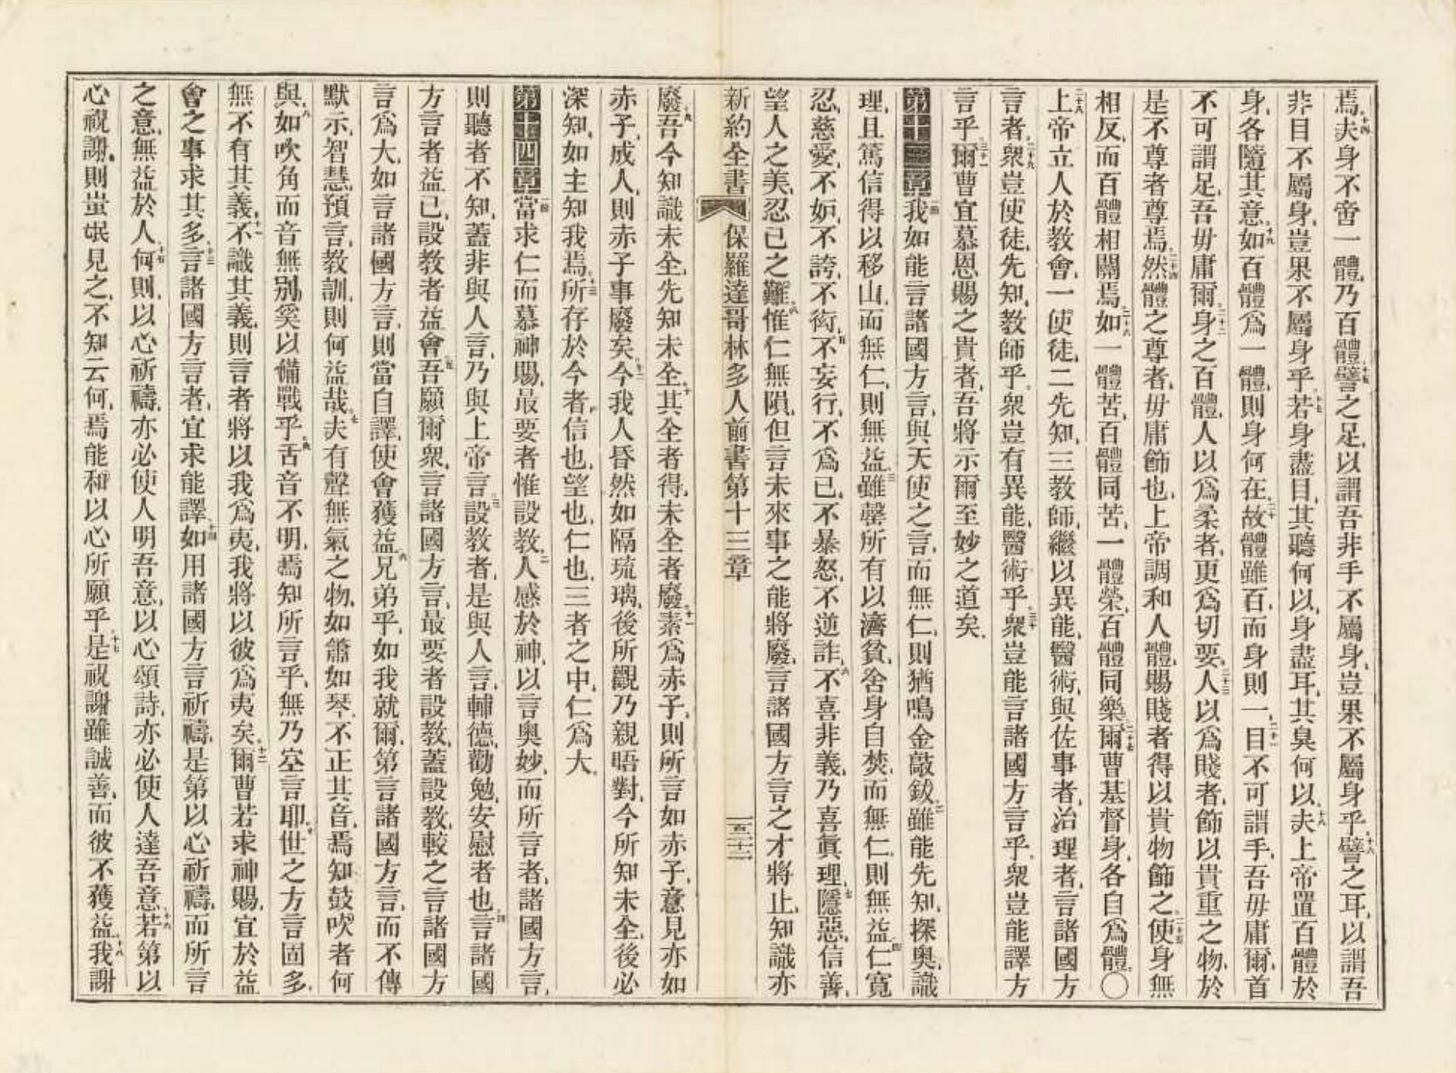 焉十四夫身不啻一體乃百體十五譬之足以謂吾非手不屬身豈果不屬身乎十六譬之耳以謂吾
非目不屬身豈果不屬身乎十七若身盡目其聽何以身盡耳其臭何以十八夫上帝置百體於
身各隨其意十九如百體爲一體則身何在二十故體雖百而身則一二十一目不可謂手吾毋庸爾首
不可謂足吾毋庸爾二十二身之百體人以爲柔者更爲切要二十三人以爲賤者飾以貴重之物於
是不尊者尊焉二十四然體之尊者毋庸飾也上帝調和人體賜賤者得以貴物飾之二十五使身無
相反而百體相關焉二十六如一體苦百體同苦一體榮百體同樂二十七爾曹基督身各自爲體〇
二十八上帝立人於教會一使徒二先知三教師繼以異能醫術與佐事者治理者言諸國方
言者二十九衆豈使徒先知教師乎衆豈有異能醫術乎三十衆豈能言諸國方言乎衆豈能譯方
言乎三十一爾曹宜慕恩賜之貴者吾將示爾至妙之道矣
第十三章一節我如能言諸國方言與天使之言而無仁則猶鳴金敲鈸二雖能先知探奧識
理且篤信得以移山而無仁則無益三雖罄所有以濟貧舍身自焚而無仁則無益四仁寬
忍慈愛不妬不誇不衒五不妄行不爲己不暴怒不逆詐六不喜非義乃喜眞理七隱惡信善
望人之美忍己之難八惟仁無隕但言未來事之能將廢言諸國方言之才將止知識亦
新約全書 保羅達哥林多人前書第十三章 百二十二
廢九吾今知識未全先知未全十其全者得未全者廢十一素爲赤子則所言如赤子意見亦如
赤子成人則赤子事廢矣十二今我人昏然如隔琉璃後所觀乃親晤對今所知未全後必
深知如主知我焉十三所存於今者信也望也仁也三者之中仁爲大
第十四章一節當求仁而慕神賜最要者惟設教二人感於神以言奧妙而所言者諸國方言
則聽者不知蓋非與人言乃與上帝言三設教者是與人言輔德勸勉安慰者也四言諸國
方言者益己設教者益會五吾願爾衆言諸國方言最要者設教蓋設教較之言諸國方
言爲大如言諸國方言則當自譯使會獲益六兄弟乎如我就爾第言諸國方言而不傳
默示智慧預言教訓則何益哉七夫有聲無氣之物如簫如琴不正其音焉知鼓吹者何
與八如吹角而音無別奚以備戰乎九舌音不明焉知所言乎無乃空言耶十世之方言固多
無不有其義十一不識其義則言者將以我爲夷我將以彼爲夷矣十二爾曹若求神賜宜於益
會之事求其多十三言諸國方言者宜求能譯十四如用諸國方言祈禱是第以心祈禱而所言
之意無益於人十五何則以心祈禱亦必使人明吾意以心頌詩亦必使人達吾意十六若第以
心祝謝則蚩氓見之不知云何焉能和以心所願乎十七是祝謝雖誠善而彼不獲益十八我謝